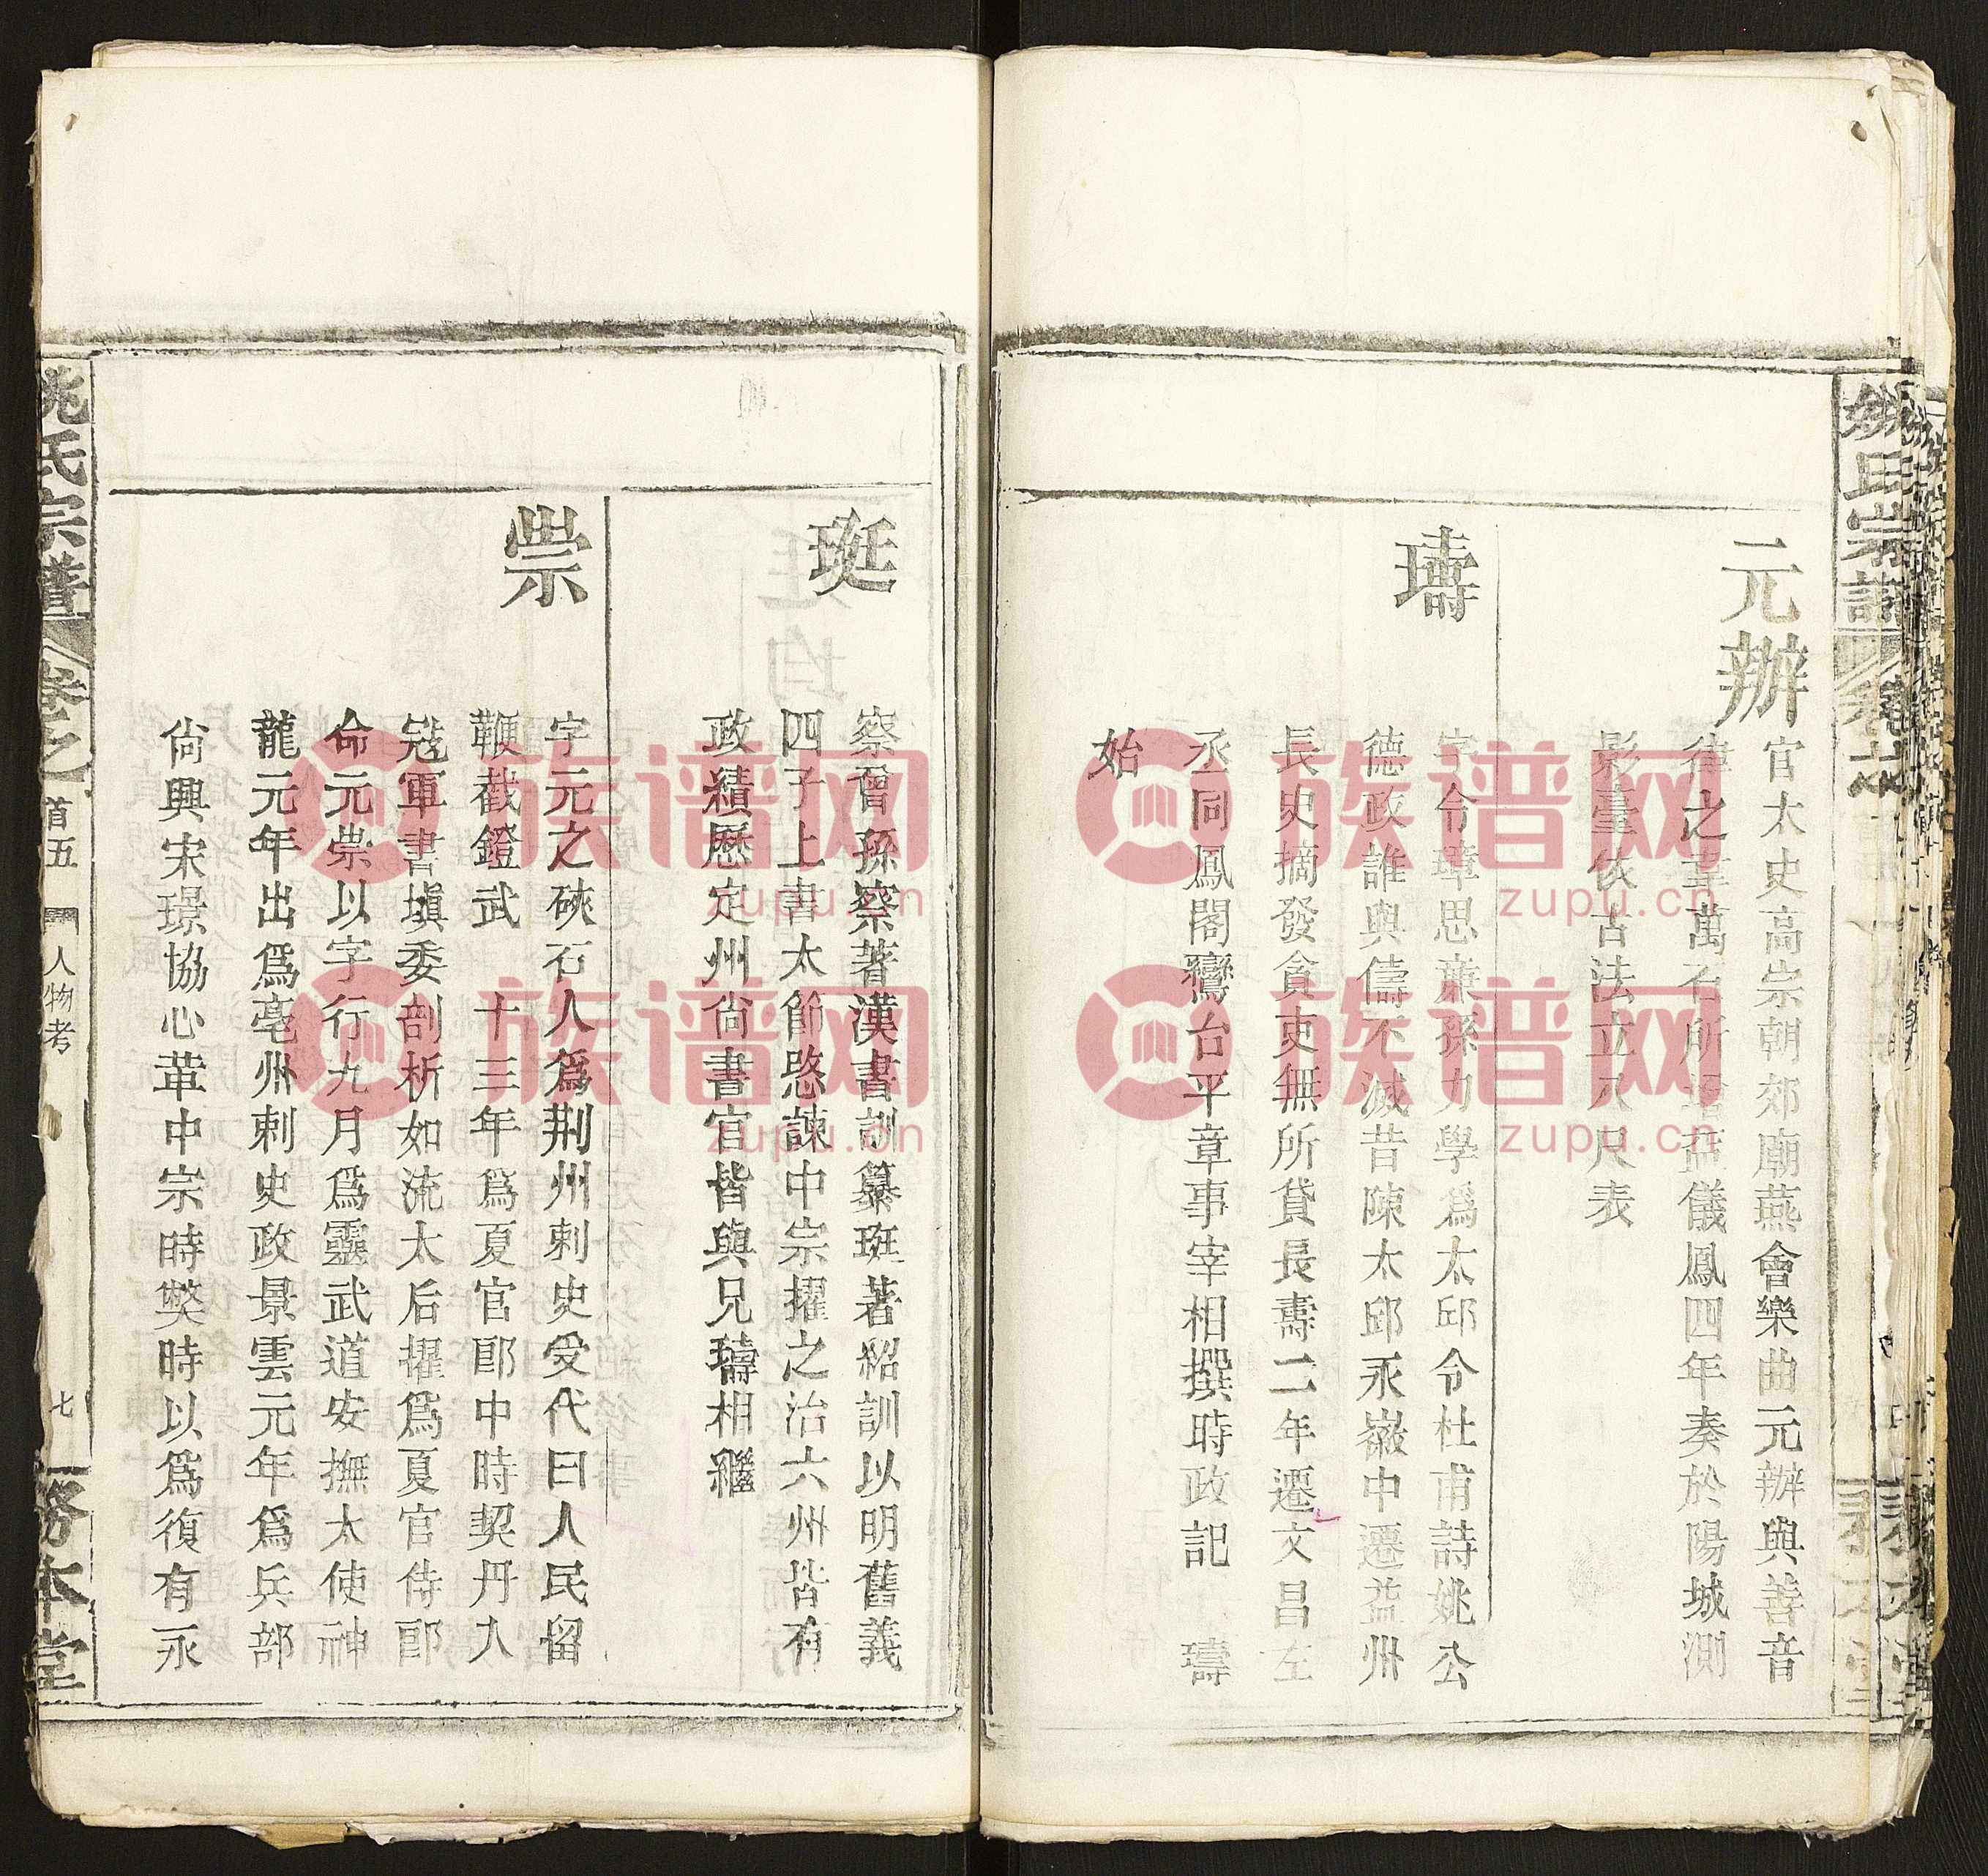 姚氏宗譜
元辦
官太史高宗朝郊廟燕會樂曲元辦與善音
律之韋萬石所增益儀鳳四年奏於陽城測
影臺依古法立八尺表
璹
字令璋思廉孫力學爲太邱令杜甫詩姚公
德政誰與儔不滅昔陳太邱永徽中遷益州
長史摘發貪吏無所貸長壽二年遷文昌左
丞同鳳閣鸞台平章事宰相撰時政記 璹
始
珽
察曾孫察著漢書訓纂珽著紹訓以明舊義
四子上書太節愍諫中宗擢之治六州皆有
政績歷定州尚書官皆與兄璹相繼
崇
字元之硤石人爲荆州刺史受代日人民留
鞭截鐙武 十三年爲夏官郎中時契丹入
寇軍書塡委剖析如流太后擢爲夏官侍郎
命元崇以字行九月爲靈武道安撫太使神
龍元年出爲亳州刺史政景雲元年爲兵部
尙興宋璟協心革中宗時弊時以爲復有永
姚氏宗譜 卷之 首五 人物考 七 務本堂
族谱网
zupu.cn
族谱网
zupu.cn
族谱网
zupu.cn
族谱网
zupu.cn